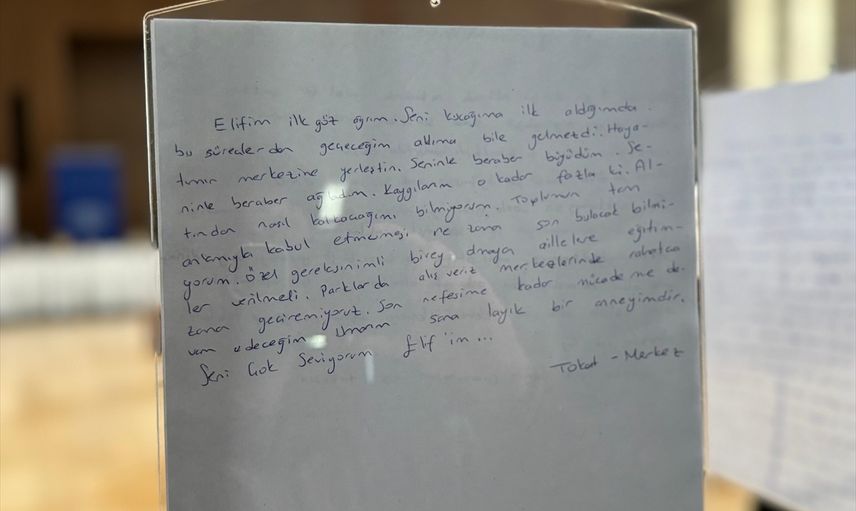 Elifim ilk göz ağrım. Seni kucağıma ilk aldığımda
bu süreclerden geçeceğim aklıma bile gelmezdi. Haya-
tımın merkezine yerleştin. Seninle beraber büyüdüm. Se-
ninle beraber ağladım. Kaygılarım o kadar fazla ki. Al-
tından nasıl kalkacağımı bilmiyorum. Toplumun tam
anlamıyla kabul etmemesi ne zaman son bulacak bilmi-
yorum. Özel gereksinimli birey olmayan aillelere eğitim-
ler verilmeli. Parklarda alış veriş merkezlerinde rahatca
zaman geciremiyoruz. Son nefesime kadar mücadeleme de-
vam edeceğim. Umarım sana layık bir anneyimdir.
Seni Çok Seviyorum Elif'im...
Tokat - Merkez